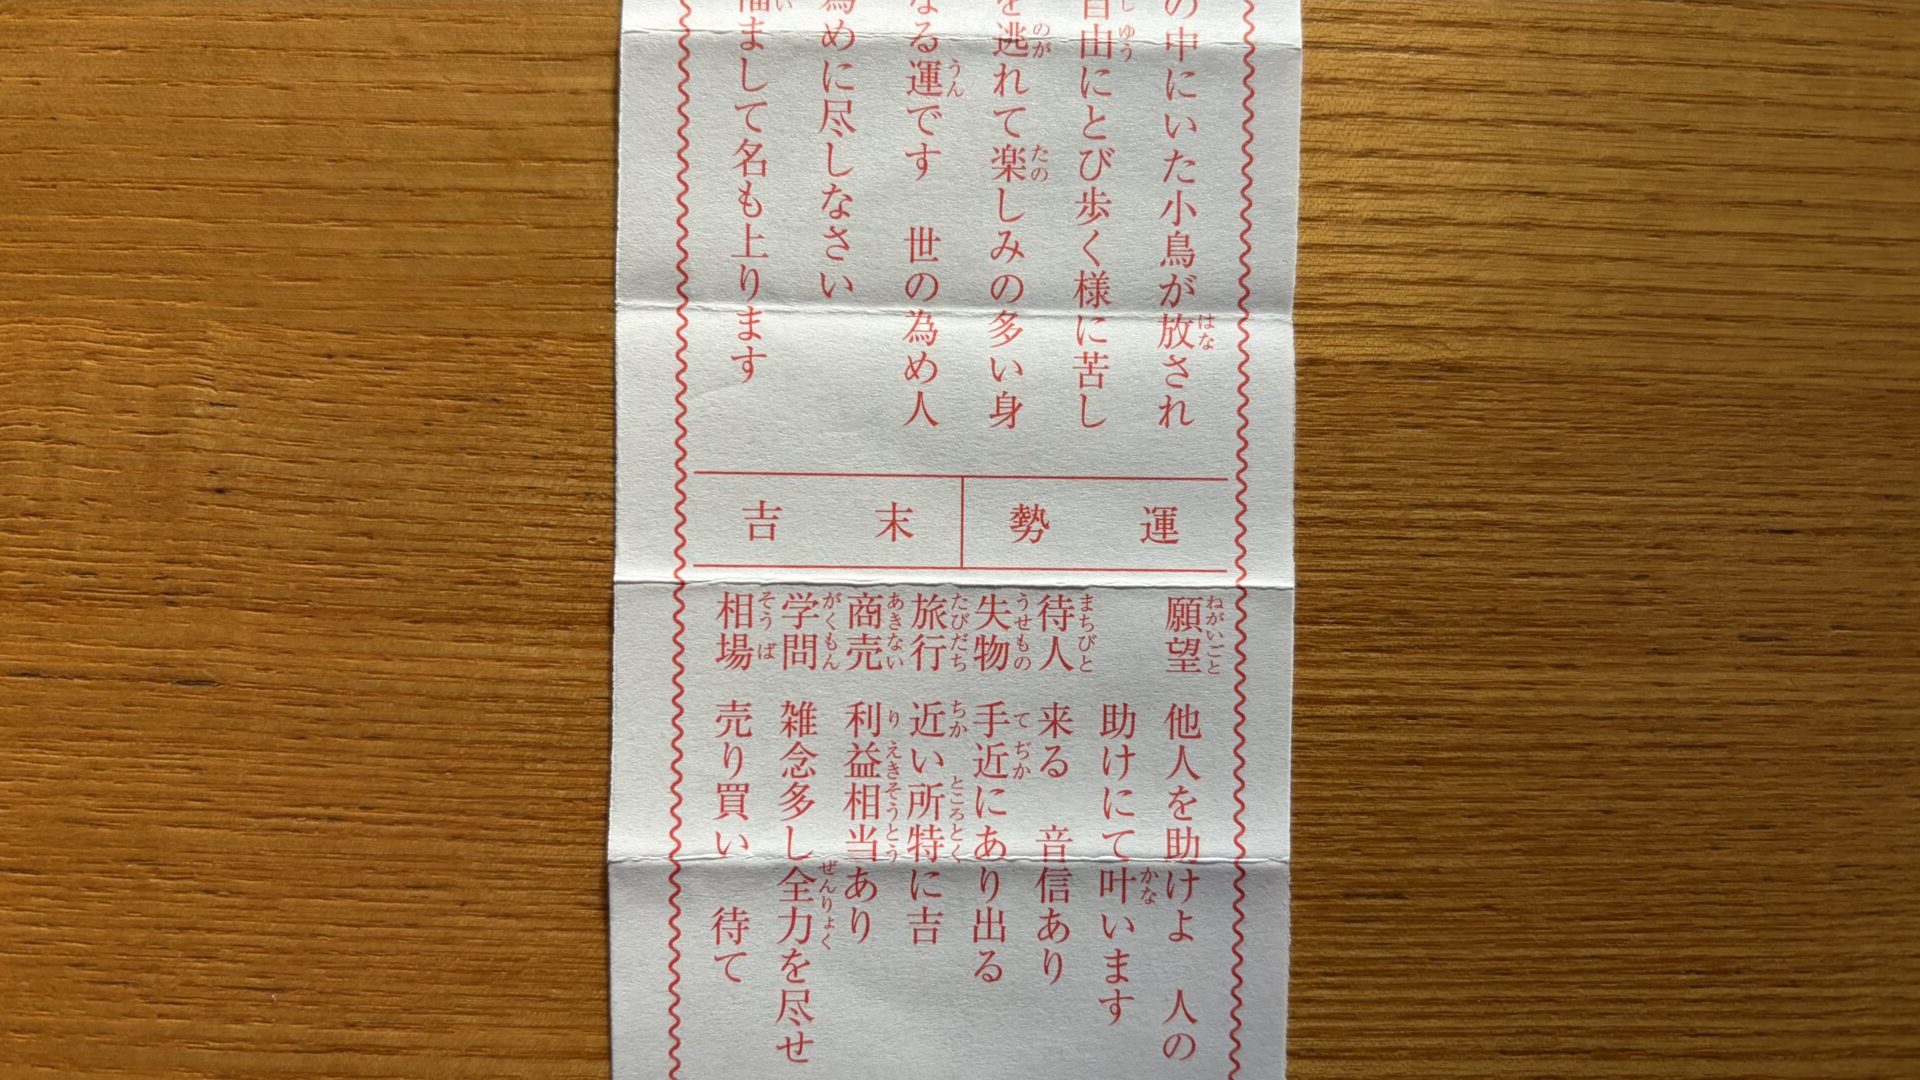 の中にいた小鳥が放され
由にとび歩く様に苦し
逃れて楽しみの多い身
る運です 世の為め人
めに尽しなさい
まして名も上ります
運勢 末吉
願望 他人を助けよ 人の
助けにて叶います
待人 来る 音信あり
失物 手近にあり出る
旅行 近い所特に吉
商売 利益相当あり
学問 雑念多し全力を尽せ
相場 売り買い 待て